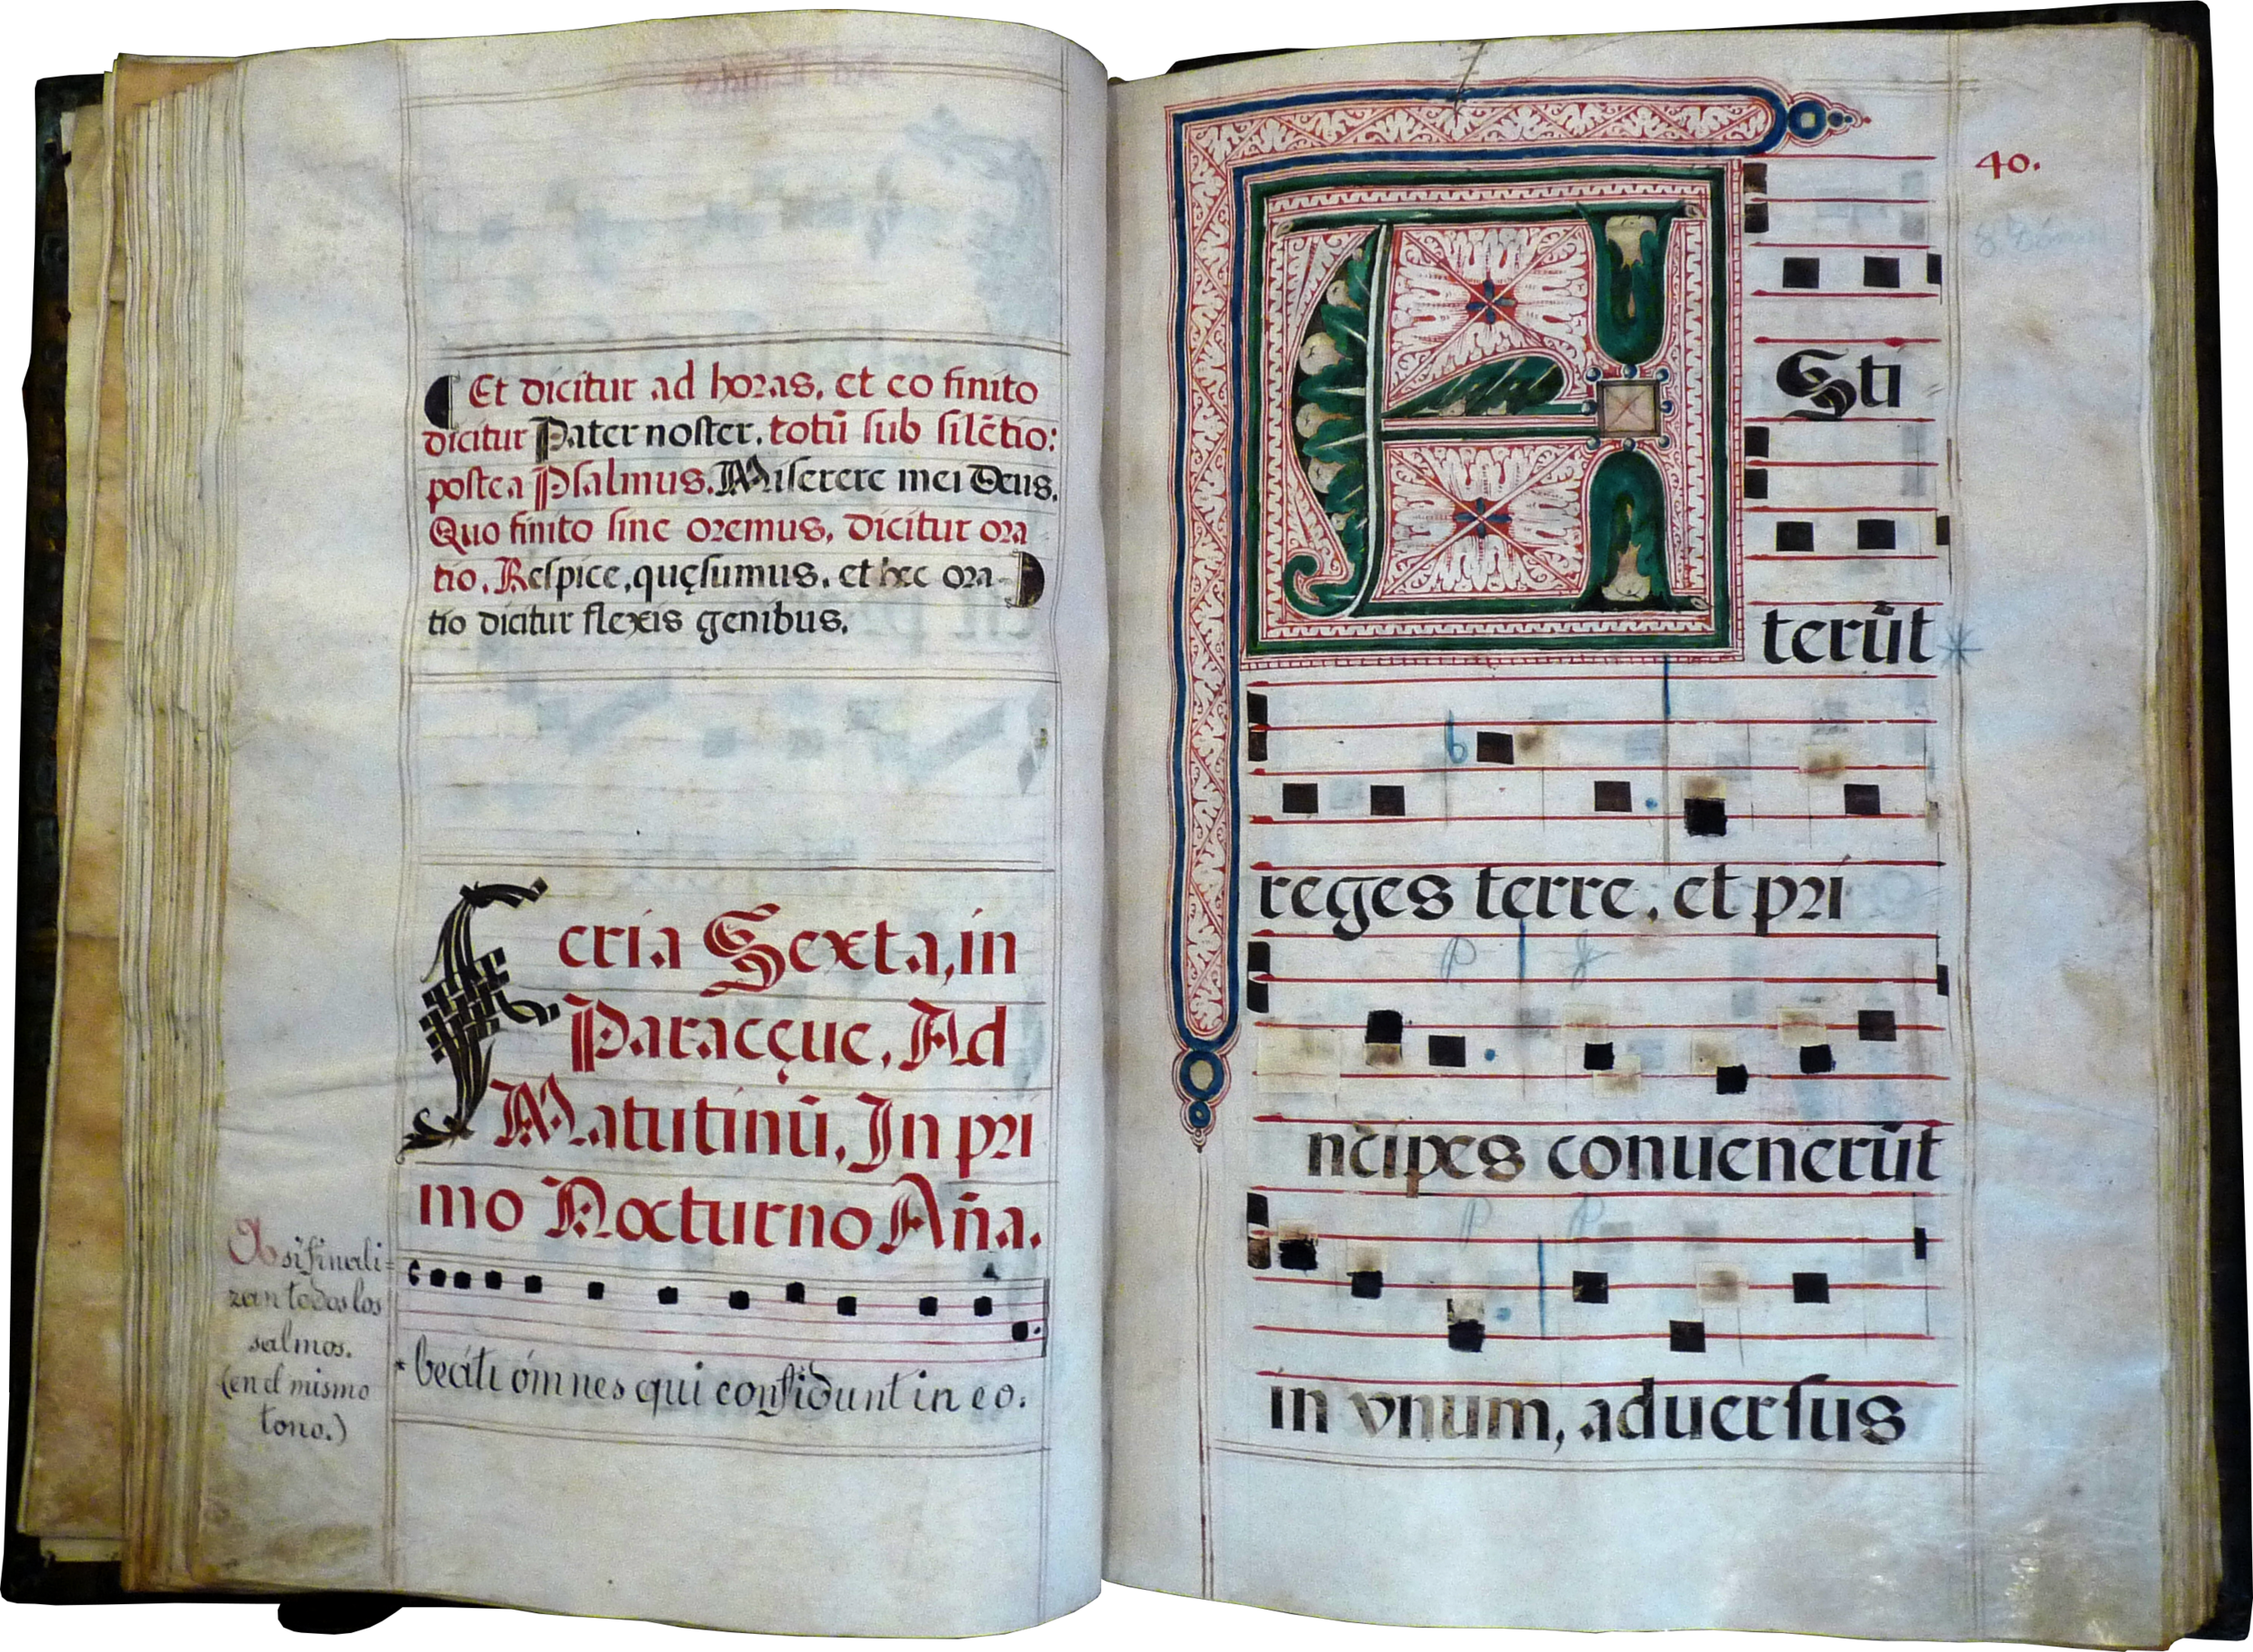 Et dicitur ad horas, et eo finito
dicitur Pater noster. totū sub silētio:
postea Psalmus. Miserere mei Deus.
Quo finito sine oremus, dicitur ora
tio. Respice, quęsumus. et hec ora-
tio dicitur flexis genibus.
Feria Sexta, in
Parasceue, Ad
Matutinū, In pri
mo Nocturno Aña.
Asi finali=
zan todos los
salmos.
(en el mismo
tono.)
* beáti ómnes qui confidunt in eo.
40.
ESti
terūt *
reges terre, et pri
ncipes conuenerūt
in vnum, aduersus